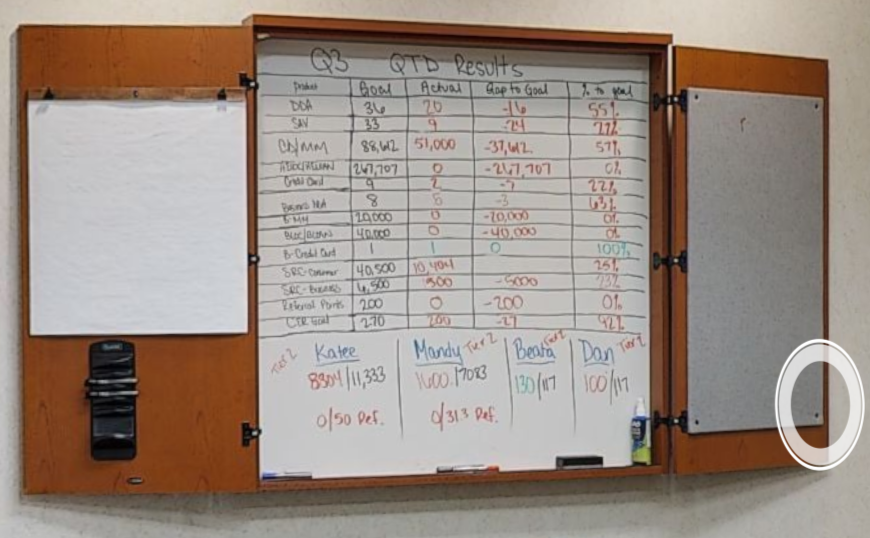 Q3 QTD Results
Product Goal Actual Gap to Goal % to goal
DDA 36 20 -16 55%
SAV 33 9 -24
CD/MM 88,612 51,000 -37,612 57%
267,707 0 -267,707 0%
Credit Card 9 2 -7 22%
Business DDA 8 5 -3 63%
B-MM 20,000 0 -20,000 0%
40,000 0 -40,000 0%
B-Credit Card 1 1 0 100%
SRC-Consumer 40,500 10,404 25%
SRC-Business 6,500 1500 -5000 23%
Referral Points 200 0 -200 0%
CTR Goal 270 200 -27 92%
Tier 2 Katee Mandy Tier 2 Beata Tier 2 Dan Tier 2
8304/11,333 1600/7083 130/117 100/117
0/50 Ref. 0/313 Ref.